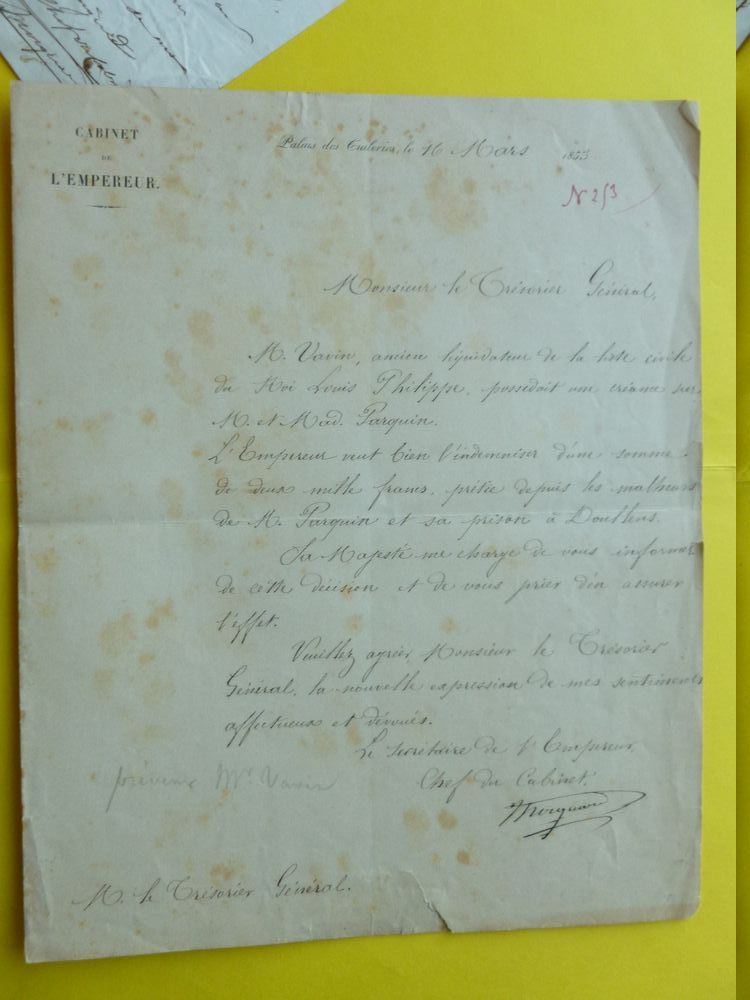 CABINET
DE
L'EMPEREUR.
Palais des Tuileries, le 16 Mars 1853
N 253
Monsieur le Trésorier Général,
M. Vavin, ancien liquidateur de la liste civile
du Roi Louis Philippe, possédait une créance sur
M. et Mad. Parquin.
L'Empereur veut bien l'indemniser d'une somme
de deux mille francs, prêtée depuis les malheurs
de M. Parquin et sa prison à Doullens.
Sa Majesté me charge de vous informer
de cette décision et de vous prier d'en assurer
l'effet.
Veuillez agréer, Monsieur le Trésorier
Général, la nouvelle expression de mes sentiments
affectueux et dévoués.
Le secrétaire de l'Empereur,
Chef du Cabinet.
Mocquard
prévenir Mr. Vavin
M. le Trésorier Général.